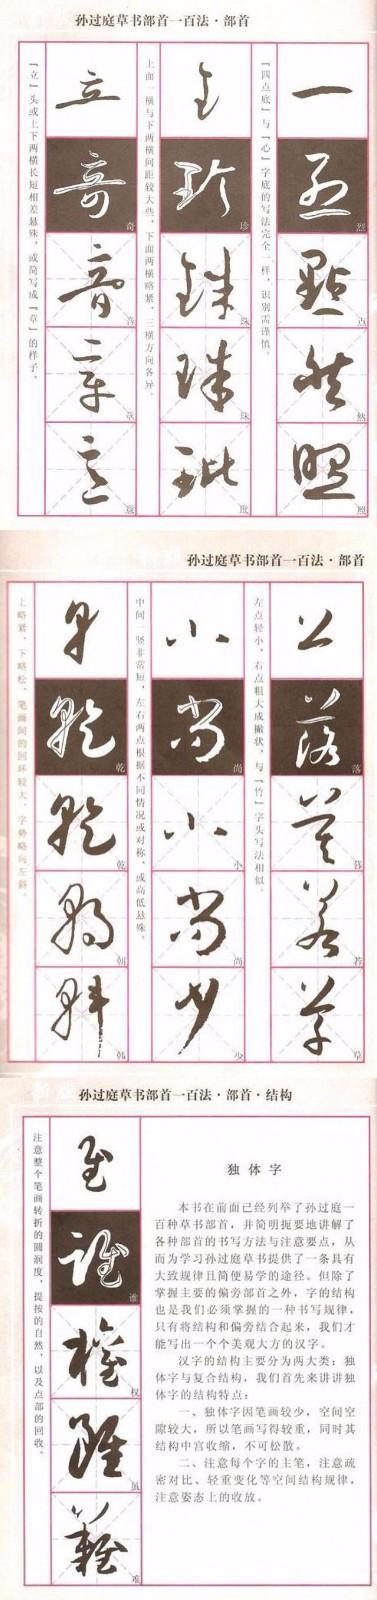 孙过庭草书部首一百法·部首
『四点底』与『心』字底的写法完全一样，识别需谨慎。
烈
点
然
照
上面一横与下两横间距较大些，下面两横略紧，三横方向各异。
珍
珠
珠
玭
『立』头或上下两横长短相差悬殊，或简写成『草』的样子。
奇
音
章
意
孙过庭草书部首一百法·部首
左点轻小，右点粗大成撇状，与『竹』字头写法相似。
落
暮
若
草
中间一竖非常短，左右两点根据不同情况或对称，或高低悬殊。
尚
小
尚
少
上略紧，下略松，笔画间的回环较大，字势略向左斜。
乾
乾
朝
韩
孙过庭草书部首一百法·部首·结构
独体字
本书在前面已经列举了孙过庭一
百种草书部首，并简明扼要地讲解了
各种部首的书写方法与注意要点，从
而为学习孙过庭草书提供了一条具有
大致规律且简便易学的途径。但除了
掌握主要的偏旁部首之外，字的结构
也是我们必须掌握的一种书写规律，
只有将结构和偏旁结合起来，我们才
能写出一个个美观大方的汉字。
汉字的结构主要分为两大类：独
体字与复合结构，我们首先来讲讲
独体字的结构特点：
一、独体字因笔画较少，空间空
隙较大，所以笔画写得较重，同时其
结构中宫收缩，不可松散。
二、注意每个字的主笔，注意疏
密对比、轻重变化等空间结构规律，
注意姿态上的收放。
注意整个笔画转折的圆润度，提按的自然，以及点部的回收。
谁
权
虽
难